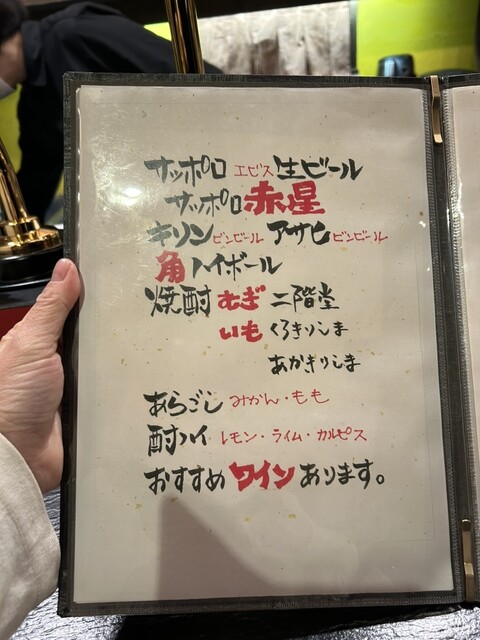 サッポロ エビス 生ビール
サッポロ 赤星
キリン ビンビール アサヒ ビンビール
角ハイボール
焼酎 むぎ 二階堂
いも くろきりしま
あかきりしま
あらごし みかん・もも
酎ハイ レモン・ライム・カルピス
おすすめワインあります。